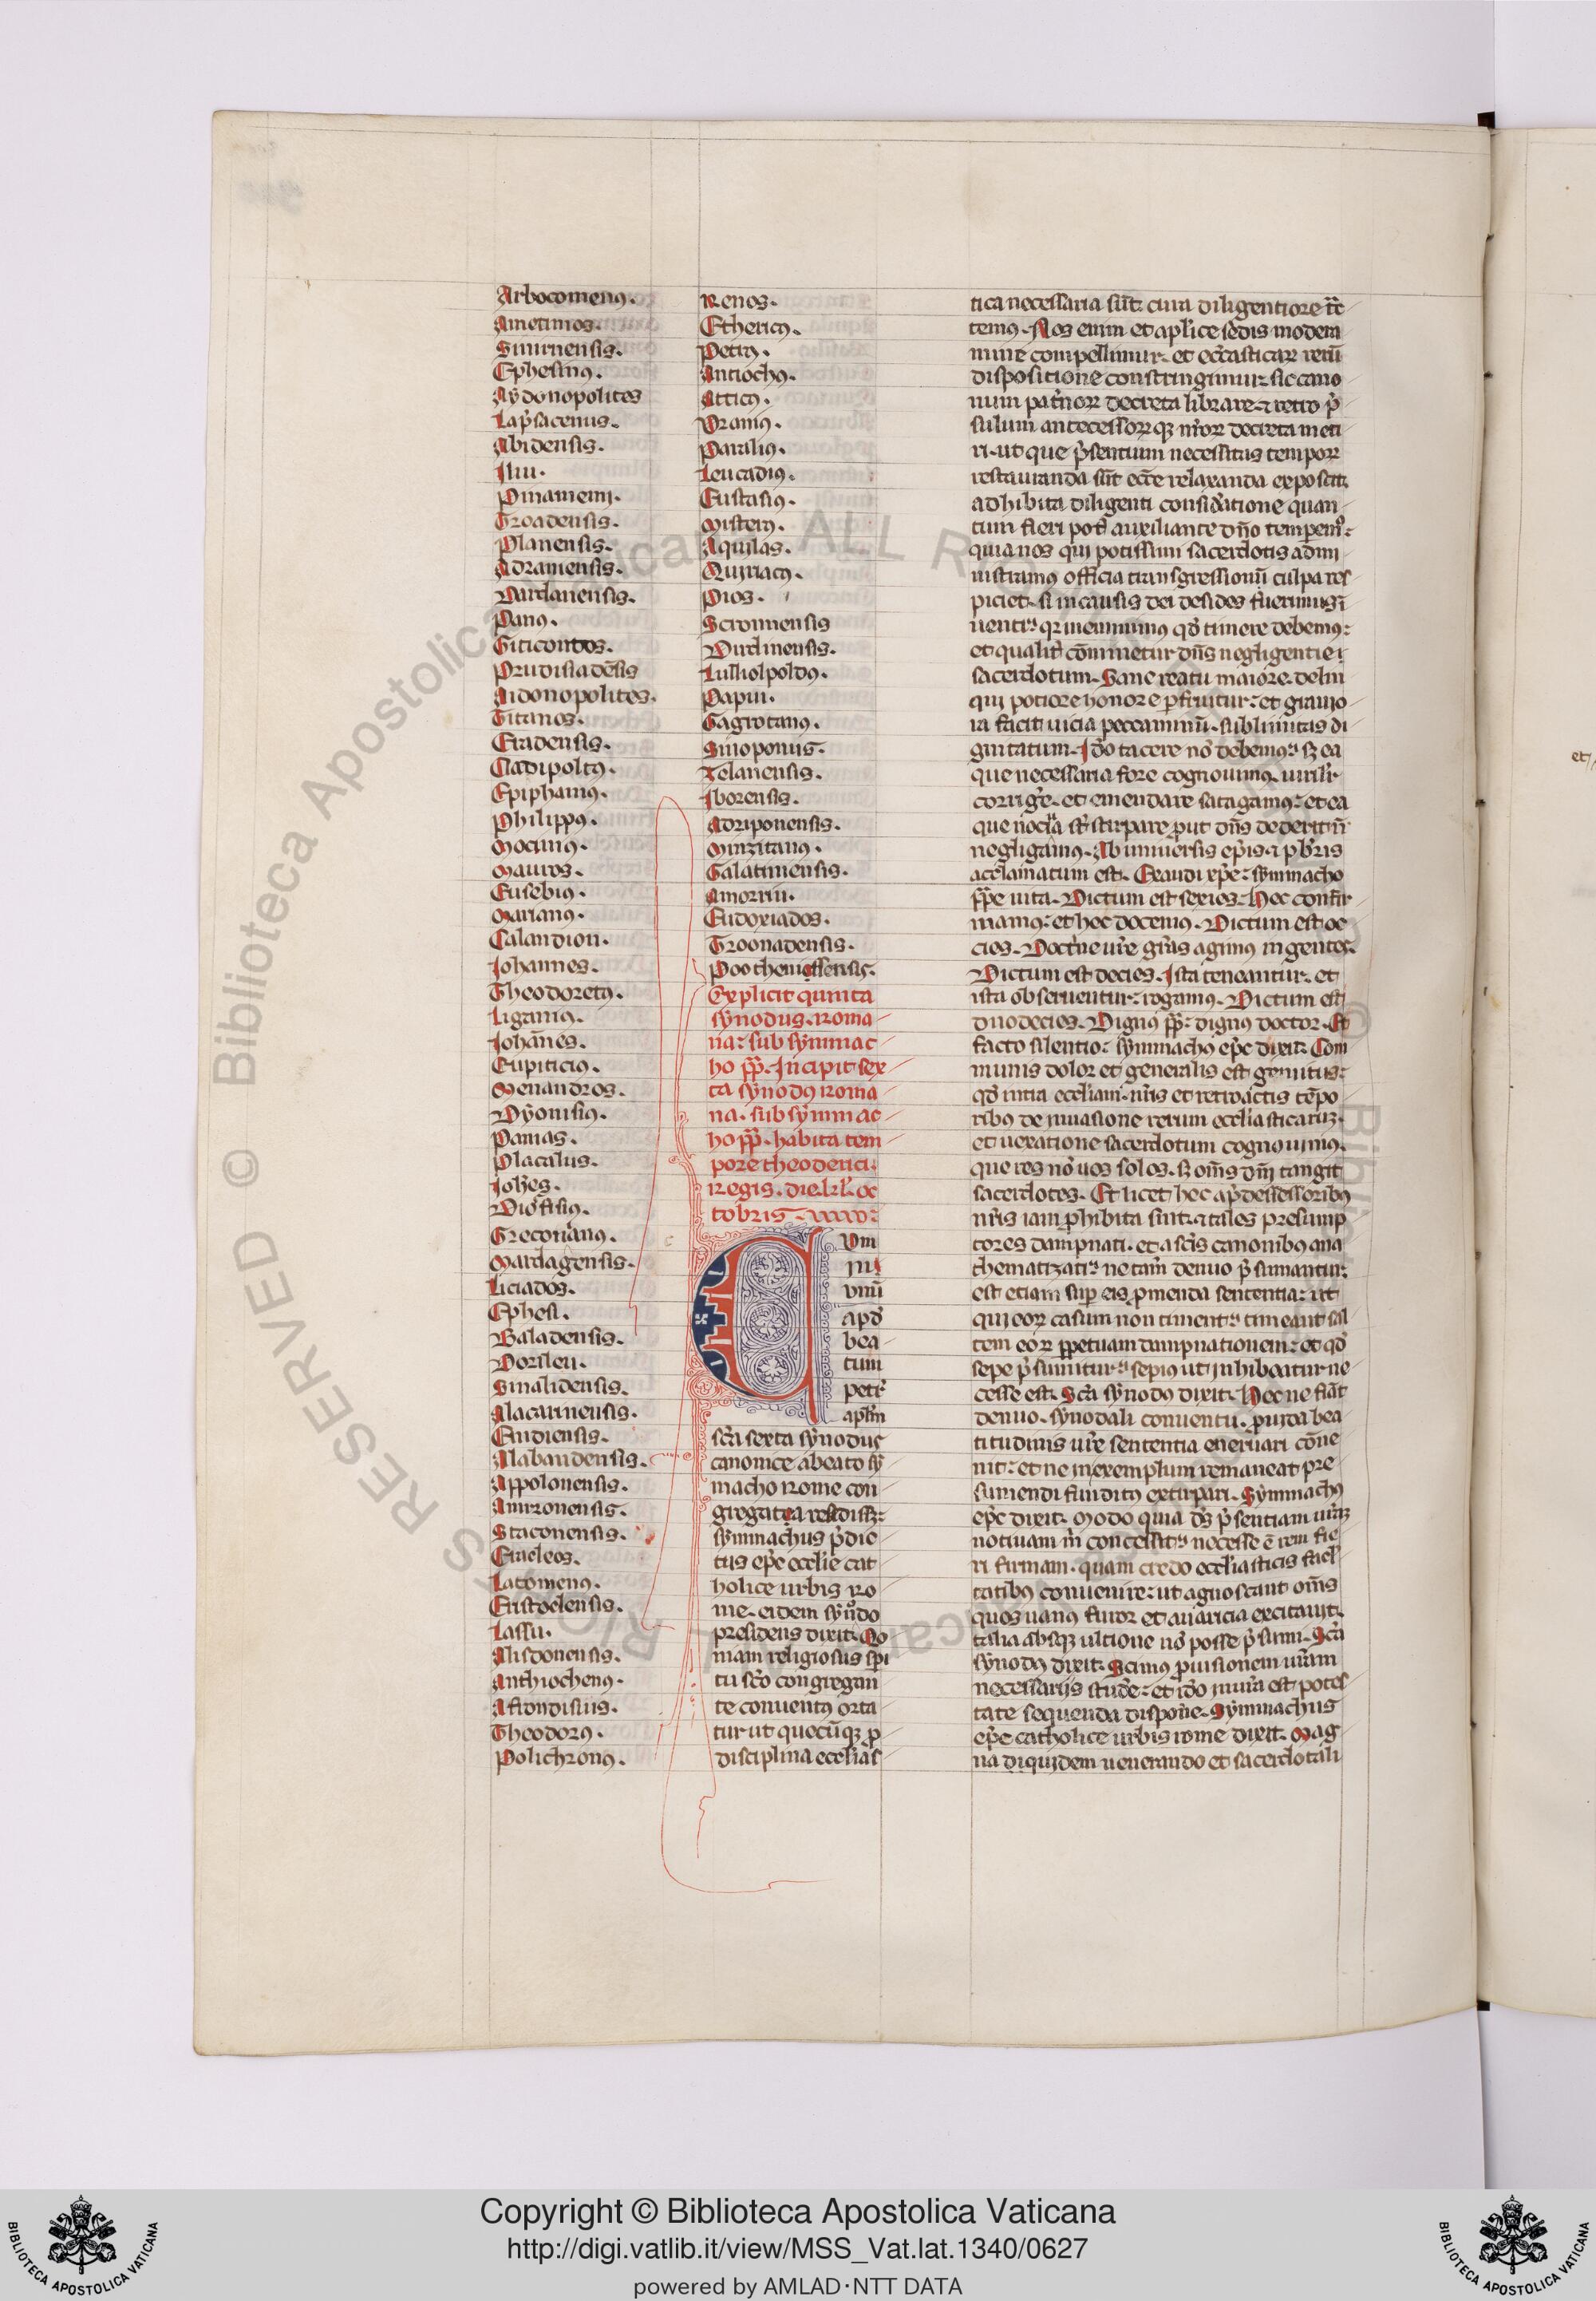 Arbocomenus.
Ametimos.
Smirnensis.
Ephesinus.
Aydonopolites
Lapsacenus.
Abidensis.
Iliu.
Pinamenij.
Troadensis.
Planensis.
Adramensis.
Dardanensis.
Panus.
Citicontos.
Prudisiadensis
Aidonopolites.
Titanos.
Eradensis.
Cladipoltus.
Epiphanius.
Philippus.
Mocimus.
Mauros.
Eusebius.
Marianus.
Calandion.
Johannes.
Theodoretus.
Liganius.
Johanes.
Eupiticius.
Menandros.
Dyonisius.
Pamas.
Placalus.
Johes.
Dionisius.
Gregorianus.
Mardagensis.
Liciados.
Ephesi.
Baladensis.
Dorileu.
Sinalidensis.
Alacarnensis.
Eudiensis.
Alabandensis.
Appolonensis.
Amizonensis.
Staconensis.
Eracleos.
Latomenus.
Eristoclensis.
Lassu.
Alisdonensis.
Anthiochenus.
Afrondisius.
Theodorus.
Polichronus.
Renos.
Ethericus.
Petrus.
Antiochus.
Atticus.
Uranius.
Paralius.
Leucadius.
Eustasius.
Misterus.
Aquilas.
Quiriacus.
Pios.
Scronnensis
Durlinensis.
Luliolpoldus.
Papiu.
Gagrotanus.
Sinoponus.
Telanensis.
Iborensis.
Adriponensis.
Minzitanus.
Galatinensis.
Amorriu.
Eudoxiados.
Troonadensis.
Poothenissensis.
Explicit quinta
synodus. Roma
na: sub symmac
ho pp. Incipit sex
ta synodus Roma
na. sub symmac
ho pp. habita tem
pore theoderici
Regis. die. kl. oc
tobris
Vm
in
vnu
apd
bea
tum
petr
aplm
sca sexta synodus
canonice a beato sy
macho Rome con
gregata resedissz
symmachus pdic
tus epc ecclie cat
holice urbis Ro
me. eidem synodo
presidens dixit. Qo
niam religiosus spi
tu sco congregan
te conuentus orta
tur ut quecumqz p
disciplina ecclias
tica necessaria sut. cura diligentiore tc
temus. Nos enim et aplice sedis modera
mine compellimur. et eccasticar reru
dispositione constringimur sic cano
num patnor decreta librare. et retro p
sulum antecessorqz nror decreta meti
ri. ut que psentium necessitas tempor
restauranda sut ecce relaxanda exposcit
adhibita diligenti considatione quan
tum fieri pot auxiliante dno tempem:
quia nos qui potissim sacerdotis admi
nistramus officia transgressionu culpa res
piciet. si in causis dei desides fuerimus i
uenti. qr meminimus qd timere debemus:
et qualit comminetur dns negligentie
sacerdotum. Sane reatu maiore delin
qui potiore honore pfruitur: et grauio
ra facit uicia peccaminu. sublimitas di
gnitatum. Ido tacere no debemus sz ea
que necessaria fore cognouimus. uirilr
corrige. et emendare satagamus: et ea
que nocia st stirpare put dns dederit n
negligamus. Ab uniuersis epis et pbris
acclamatum est. Exaudi xpe: symmacho
ppe uita. Dictum est sexies. Hec confir
mamus: et hec docemus. Dictum est oc
cies. Doctne ure gras agimus ingentes.
Dictum est decies. Ista teneantur. et
ista obseruentur: rogamus. Dictum est
duodecies. Dignus pp: dignus doctor. Et
facto silentio: symmachus epc dixit. Com
munis dolor et generalis est gemitus:
qd intra eccliam. nris et retroactis tepo
ribus de inuasione rerum eccliasticarum.
et uexatione sacerdotum cognouimus.
que res no uos solos. s oms dni tangit
sacerdotes. Et licet hec ap dessessoribus
nris iam phibita sint. et tales presump
tores dampnati. et a scis canonibus ana
thematizati ne tam denuo psumantur:
est etiam sup eis pmenda sententia: ut
qui eor casum non timent timeant sal
tem eor ppetuam dampnationem: et qd
sepe psumitur sepius ut inhibeatur ne
cesse est. Sca synodus dixit. Hec ne fiat
denuo. synodali conuentu. puida bea
titudinis ure sententia eneruari coue
nit: et ne in exemplum remaneat pre
sumendi funditus extirpari. Symmachus
epc dixit. Modo quia ds psentiam urqz
notiuam m concessit necesse e rem fie
ri firmam. quam credo eccliasticis facl
tatibus conuenire: ut agnoscant oms
quos uanus furor et auaricia excitauit.
talia absqz ultione no posse psumi. Sca
synodus dixit. Scimus puisionem uram
necessarijs stude: et ido iniura est potes
tate sequenda dispone. Symmachus
epc catholice urbis rome dixit. Mag
na diquidem uenerando et sacerdotali
et
Copyright © Biblioteca Apostolica Vaticana
http://digi.vatlib.it/view/MSS_Vat.lat.1340/0627
powered by AMLAD·NTT DATA
BIBLIOTECA APOSTOLICA VATICANA
BIBLIOTECA APOSTOLICA VATICANA